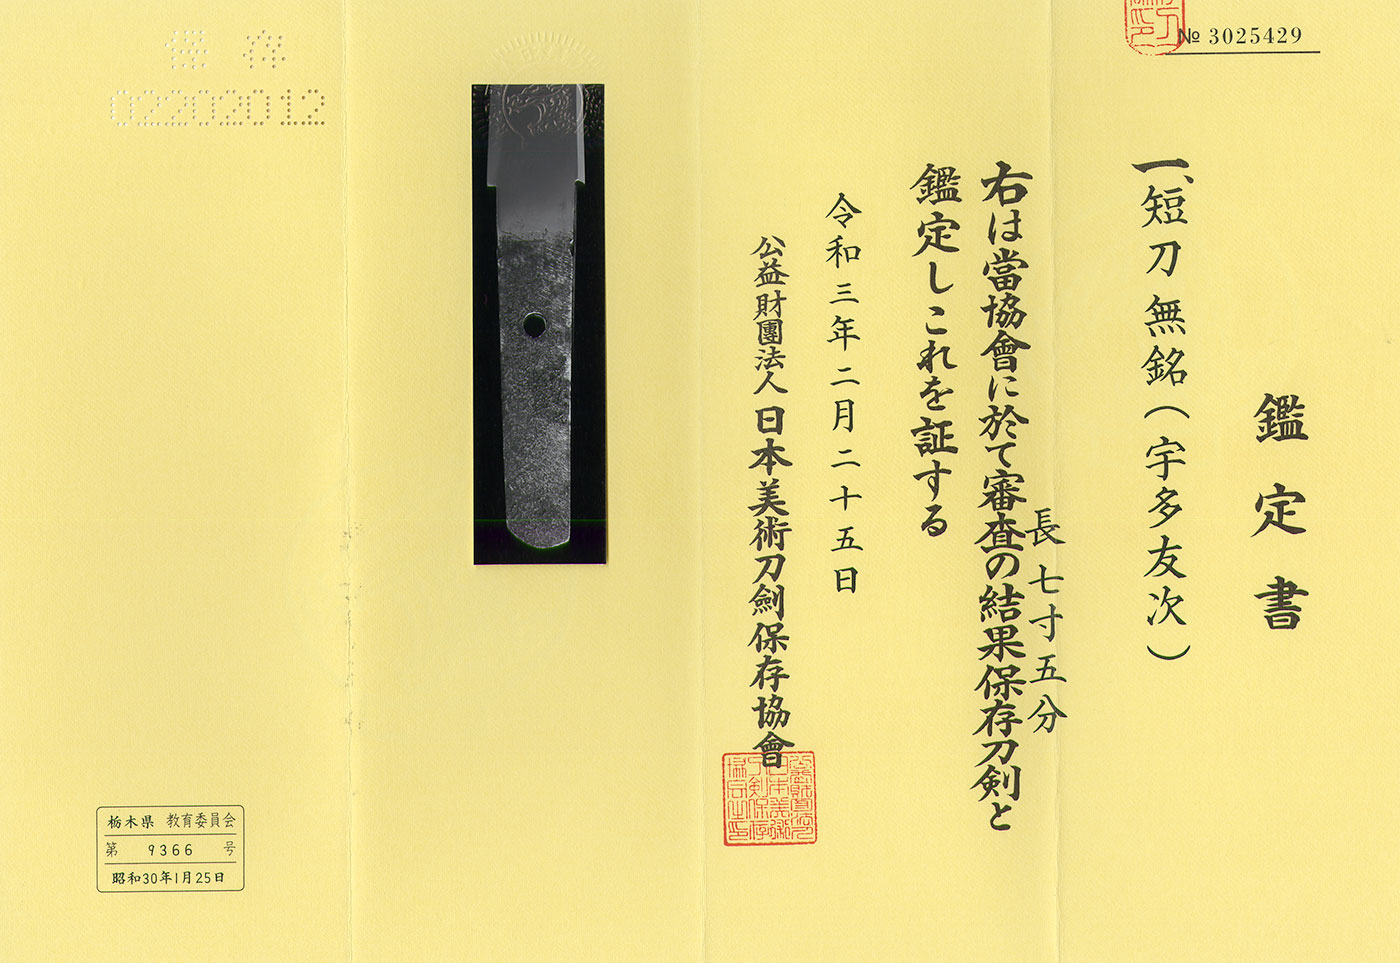 № 3025429
鑑定書
一、短刀 無銘（宇多友次）
長 七寸五分
右は當協會に於て審査の結果保存刀剣と
鑑定しこれを証する
令和三年二月二十五日
公益財團法人 日本美術刀劍保存協會
保存
02202012
栃木県 教育委員会
第 9366 号
昭和30年1月25日